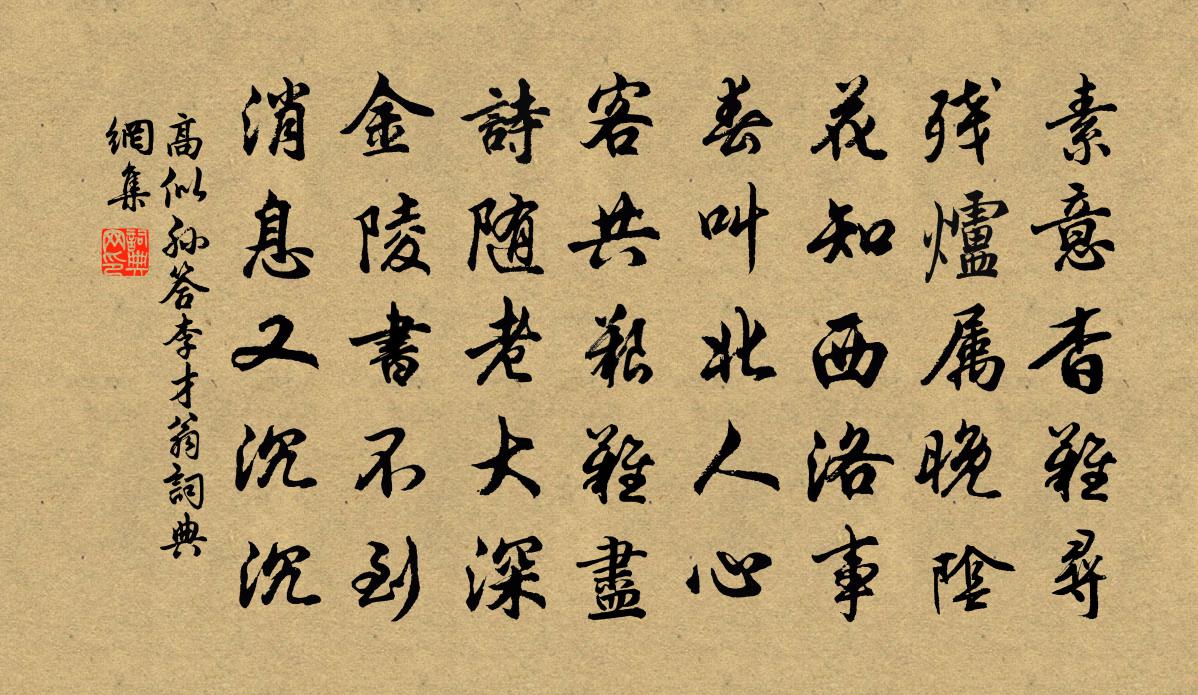 素意杳難尋
残爐属晚陰
花知西洛事
春叫北人心
客共艱難盡
詩随老大深
金陵書不到
消息又沉沉
高似孫答李才翁詞典
網集
詞典網印